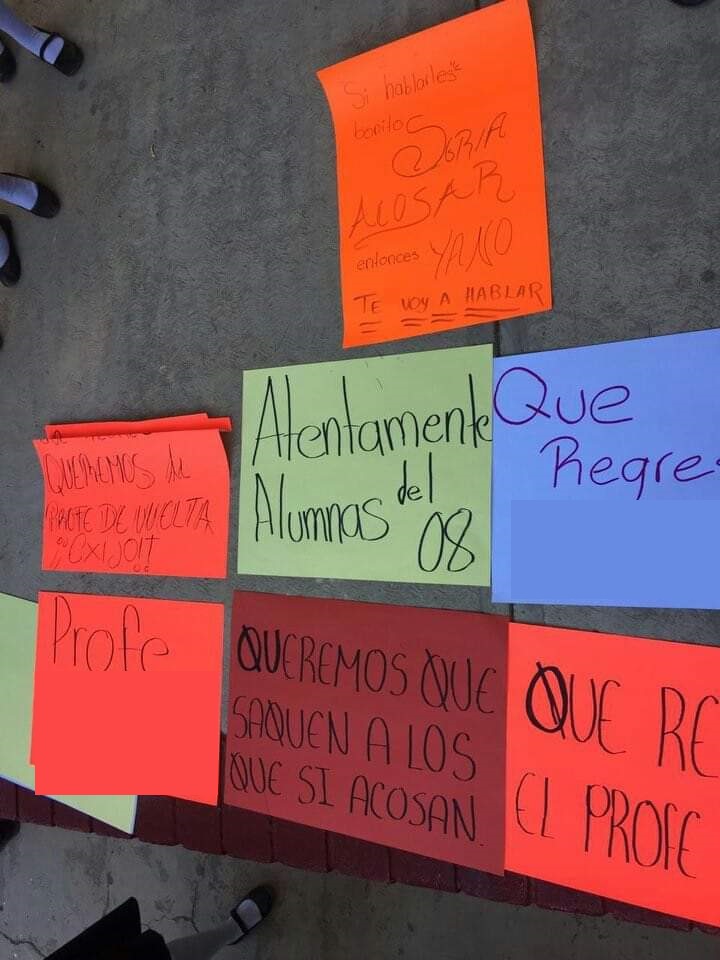 Si hablarles
bonito
SERIA
ACOSAR
entonces YANO
TE VOY A HABLAR
QUEREMOS
PROFE DE VUELTA
¡¡OXIJO!!
Atentamente
Alumnas del
08
Que
Regre
Profe
QUEREMOS QUE
SAQUEN A LOS
QUE SI ACOSAN.
QUE RE
EL PROFE